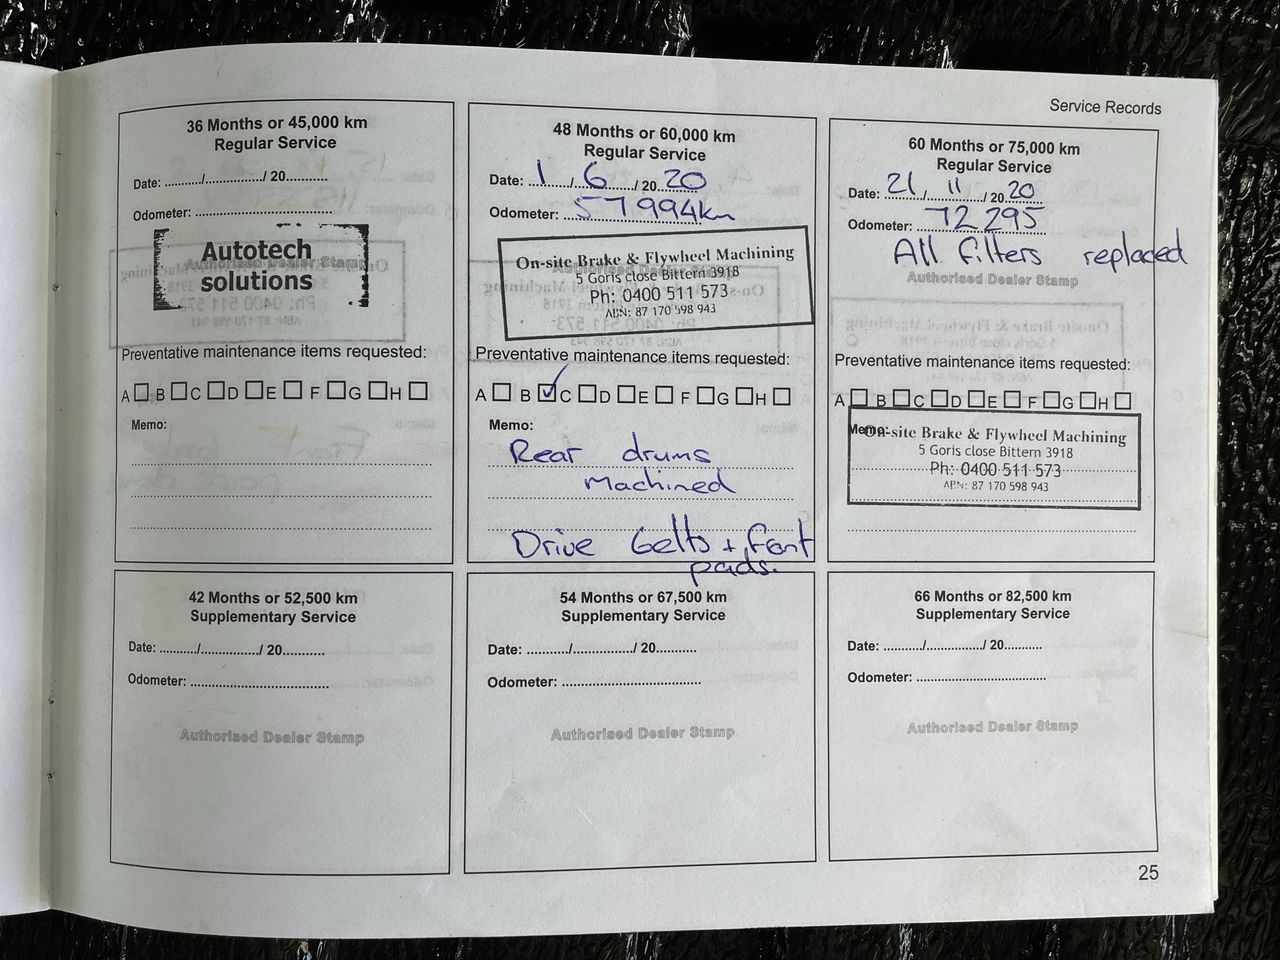 Service Records
36 Months or 45,000 km
Regular Service
Date: ........../.............../ 20..........
Odometer: ........................................
Autotech
solutions
Authorised Dealer Stamp
Preventative maintenance items requested:
A B C D E F G H
Memo:
48 Months or 60,000 km
Regular Service
Date: 1 / 6 / 20 20
Odometer: 57994km
On-site Brake & Flywheel Machining
5 Goris close Bittern 3918
Ph: 0400 511 573
ABN: 87 170 598 943
Preventative maintenance items requested:
A B ✓ C D E F G H
Memo:
Rear drums
Machined
Drive belts + front
pads.
60 Months or 75,000 km
Regular Service
Date: 21 / 11 / 20 20
Odometer: 72295
All filters replaced
Authorised Dealer Stamp
Preventative maintenance items requested:
A B C D E F G H
Memo:
On-site Brake & Flywheel Machining
5 Goris close Bittern 3918
Ph: 0400 511 573
ABN: 87 170 598 943
42 Months or 52,500 km
Supplementary Service
Date: ........../.............../ 20...........
Odometer: ........................................
Authorised Dealer Stamp
54 Months or 67,500 km
Supplementary Service
Date: ........../.............../ 20..........
Odometer: ........................................
Authorised Dealer Stamp
66 Months or 82,500 km
Supplementary Service
Date: ........../.............../ 20..........
Odometer: ........................................
Authorised Dealer Stamp
25